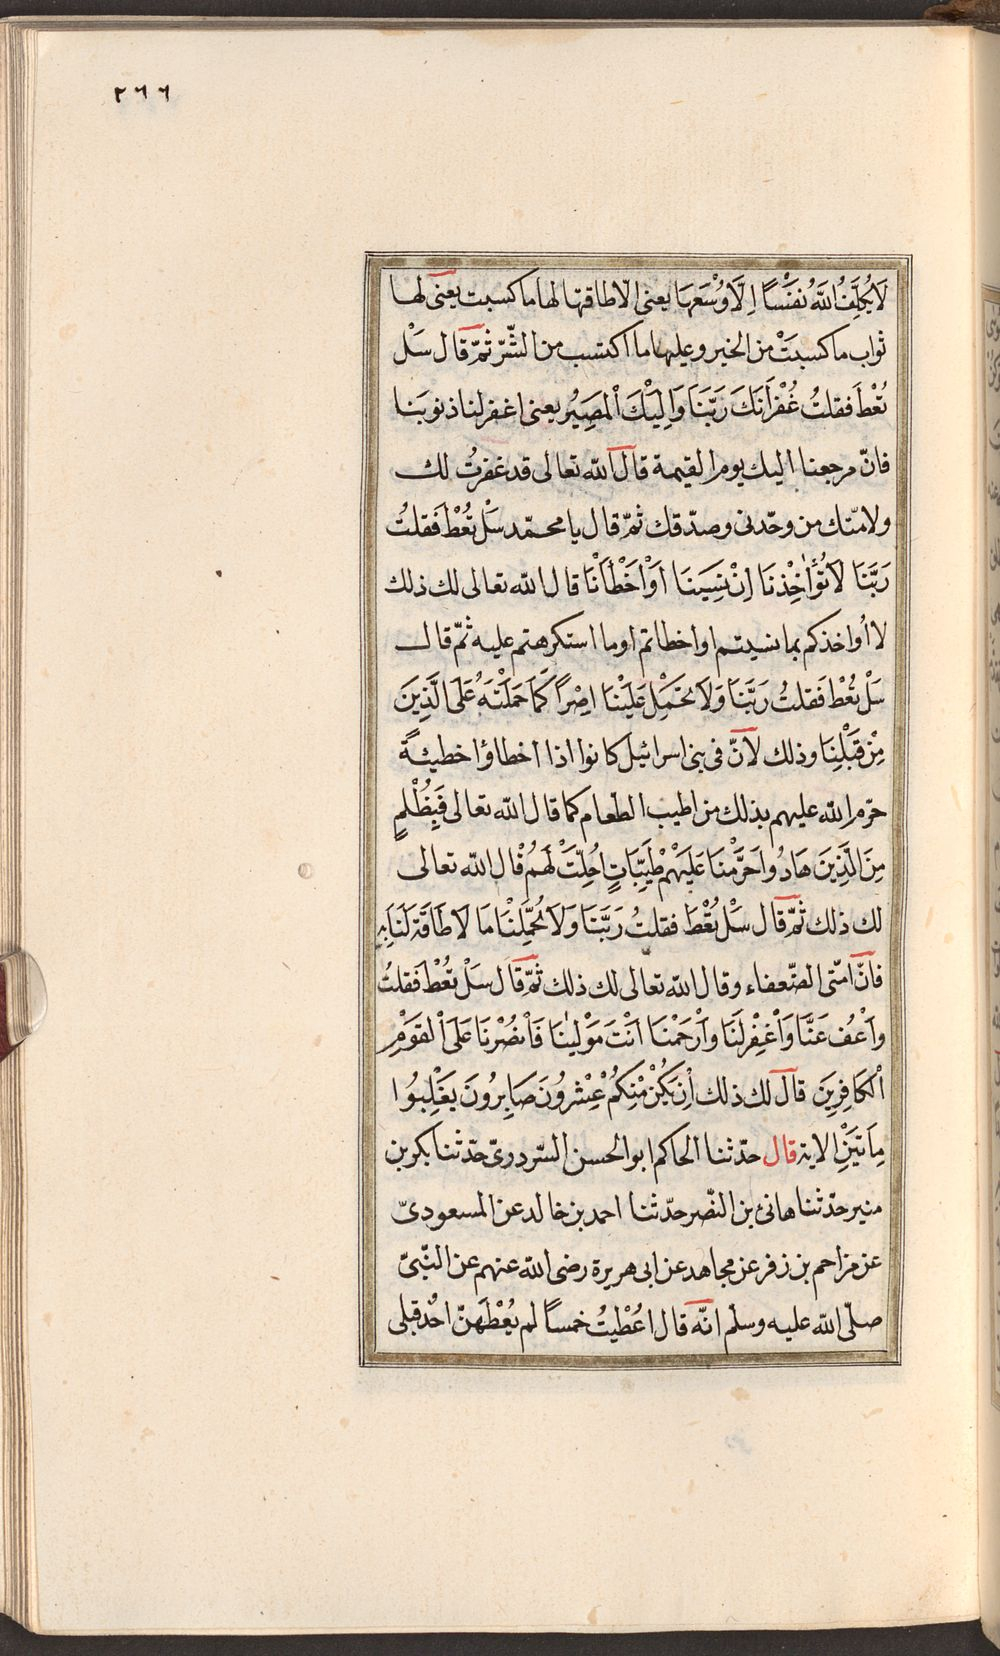 ٢٦٦
لَا يُكَلِّفُ اللَّهُ نَفْسًا اِلَّا وُسْعَهَا يعنى الا طاقتها لها ما كسبت يعنى لها
ثواب ما كسبتْ من الخير وعليها ما اكتسب من الشّرّ ثمّ قال سَلْ
تُعْطَ فقلتُ غُفْرَانَكَ رَبَّنَا وَاِلَيْكَ اْلمَصِيْرُ يعنى اغفر لنا ذنوبَنا
فانّ مرجعنا اليك يوم القيمة قال اللّه تعالى قد غفرتُ لك
ولامّتك من وحّدنى وصدّقك ثمّ قال يا محمّد سَلْ تُعْطَ فَقلتُ
رَبَّنَا لَا تُؤَاخِذْنَا اِنْ نَسِيَنَا اَوْ اَخْطَأْنَا قال اللّه تعالى لك ذلك
لا اُواخذكم بما نسيتم او اخطاتم او ما استكرهتم عليه ثمّ قال
سَلْ تُعْطَ فَقلتُ رَبَّنَا وَلَا تَحْمِلْ عَلَيْنَا اِصْرًا كَمَا حَمَلْتَهُ عَلَى الَّذِينَ
مِنْ قَبْلِنَا وذلك لانّ فى بنى اسرائيل كانوا اذا اخطاؤا خطيئة
حرّم اللّه عليهم بذلك من اطيب الطّعام كما قال اللّه تعالى فَبِظُلْمٍ
مِنَ الَّذِينَ هَادُوا حَرَّمْنَا عَلَيْهِمْ طَيِّبَاتٍ اُحِلَّتْ لَهُمْ قال اللّه تعالى
لك ذلك ثمّ قال سَلْ تُعْطَ فقلتُ رَبَّنَا وَلَا تُحَمِّلْنَا مَا لَا طَاقَةَ لَنَا بِهِ
فانّ امّتى الضّعفاء وقال اللّه تعالى لك ذلك ثمّ قال سَلْ تُعْطَ فَقلتُ
وَاْعْفُ عَنَّا وَاْغْفِرْ لَنَا وَاْرْحَمْنَا اَنْتَ مَوْلٰينَا فَاْنْصُرْنَا عَلَى اْلقَوْمِ
اْلكَافِرِينَ قال لك ذلك اِنْ يَكُنْ مِنْكُمْ عِشْرُونَ صَابِرُونَ يَغْلِبُوا
مِاَتَيْنِ الاية قال حدّثنا الحاكم ابو الحسن السّردرىّ حدّثنا بكر بن
منير حدّثنا هانئ بن النّضر حدّثنا احمد بن خالد عن المسعودىّ
عن مزاحم بن زفر عن مجاهد عن ابى هريرة رضى اللّه عنهم عن النّبىّ
صلّى اللّه عليه وسلّم انّه قال اعْطيتُ خمسًا لم يُعْطَهنّ احْد قبلى